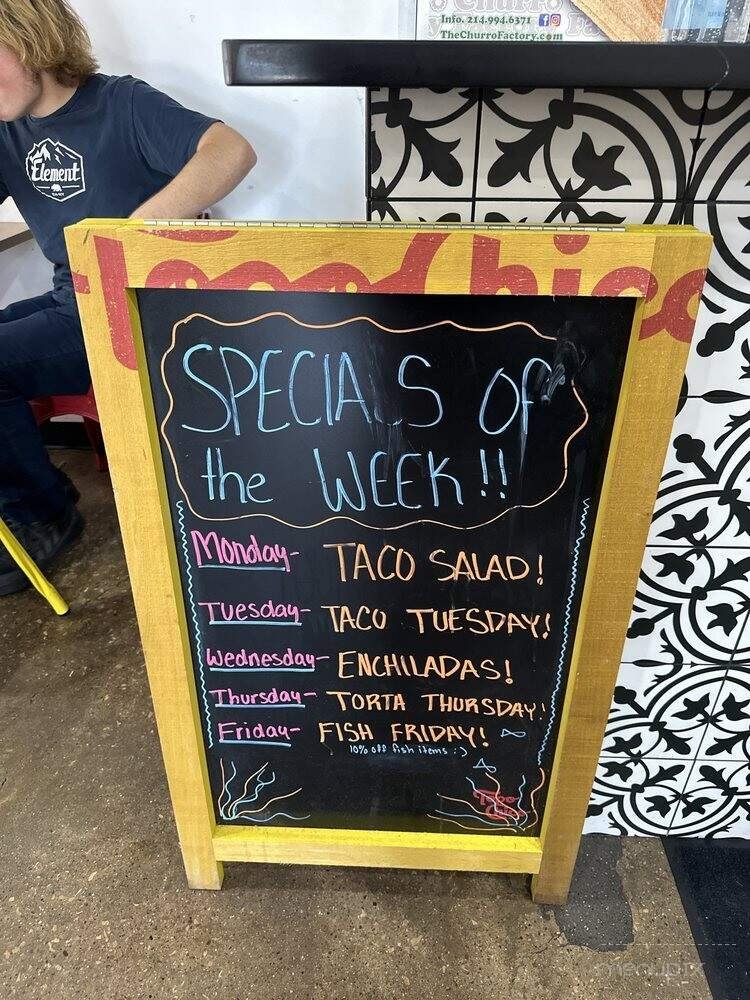 Info. 214.994.6371
TheChurroFactory.com
Element
Topo Chico
SPECIALS OF
the WEEK!!
Monday- TACO SALAD!
Tuesday- TACO TUESDAY!
Wednesday- ENCHILADAS!
Thursday- TORTA THURSDAY!
Friday- FISH FRIDAY!
10% off fish items :)
Topo
Chico
menupix